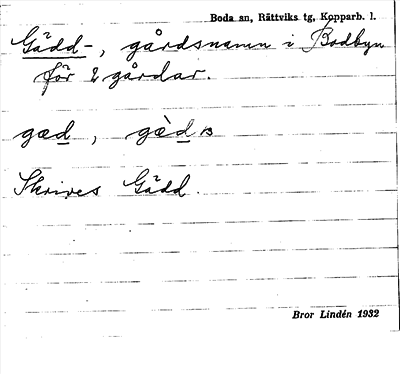 Boda sn, Rättviks tg, Kopparb. l.
Gädd-, gårdsnamn i Bodbyn
för 2 gårdar.
gæd, gæ̀ds
Skrives Gädd.
Bror Lindén 1932